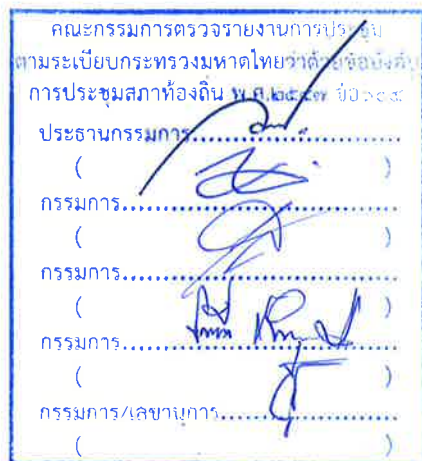 คณะกรรมการตรวจรายงานการประชุม
ตามระเบียบกระทรวงมหาดไทยว่าด้วยข้อบังคับ
การประชุมสภาท้องถิ่น พ.ศ.๒๕๔๗ ข้อ
ประธานกรรมการ
( )
กรรมการ
( )
กรรมการ
( )
กรรมการ
( )
กรรมการ/เลขานุการ
( )